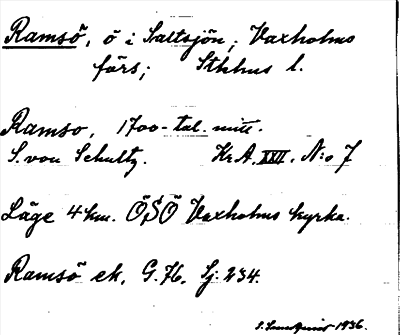 Ramsö, ö i Saltsjön, Vaxholms
förs; Sthlms l.
Ramso, 1700-tal. mitt.
S. von Schultz. Kr.A. XXII. N:o 7
Läge 4 km. ÖSÖ Vaxholms kyrka.
Ramsö ek. G. 76. Sj: 234.
1936.